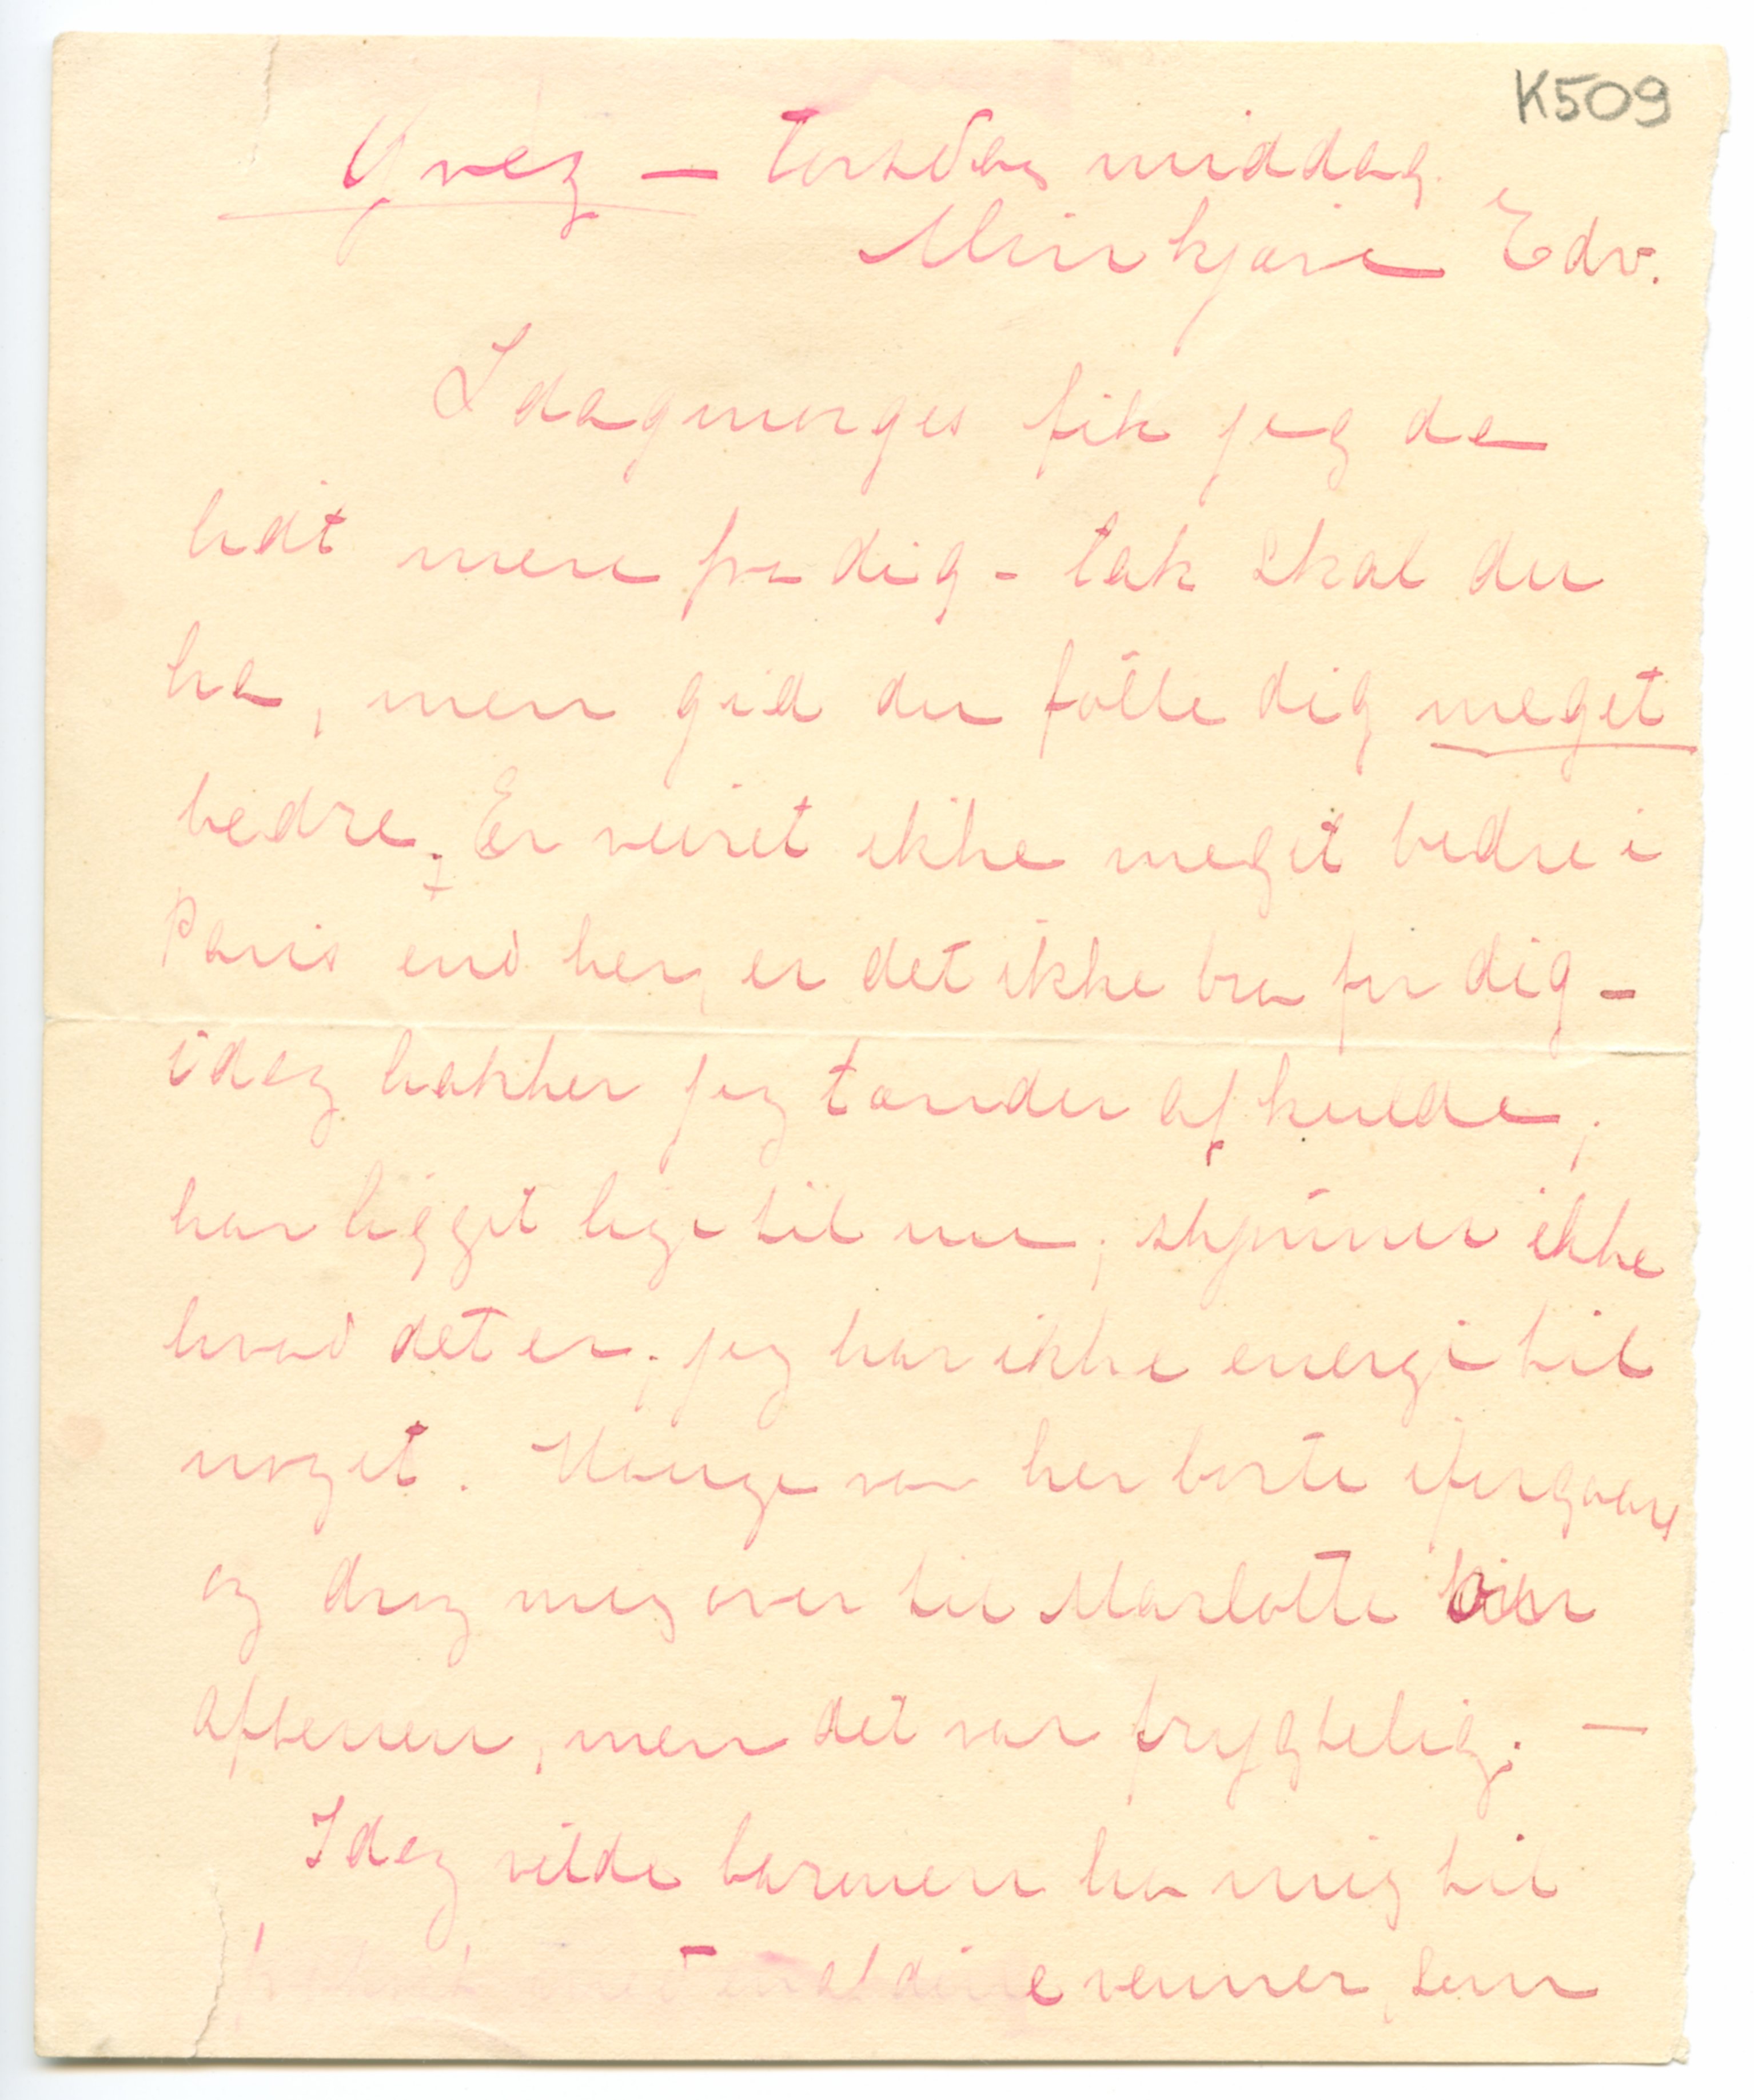 K509
Grez — torsdag middag.
Min kjære Edv.
Idagmorges fik jeg da
lidt mere fra dig – tak skal du
ha, men gid du fölte dig meget
bedre. Er veiret ikke meget bedre i
Paris end her, er det ikke bra for dig –
idag hakker jeg tænder af kulde,
har ligget lige til nu, skjönner ikke
hvad det er, jeg har ikke energi til
noget. Hauge var her borte iforgaars
og drog mig over til Marlotte
aftenen, men det var frygtelig. —
Idag vilde baronen ha mig til
frokost med en af dine venner, som